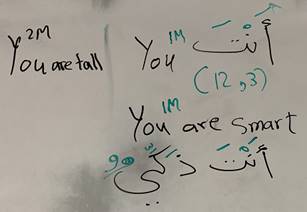 2M
You are tall
You 1M أَنْتَ
(12,3)
1M
You are smart
أَنْتَ ذَكي